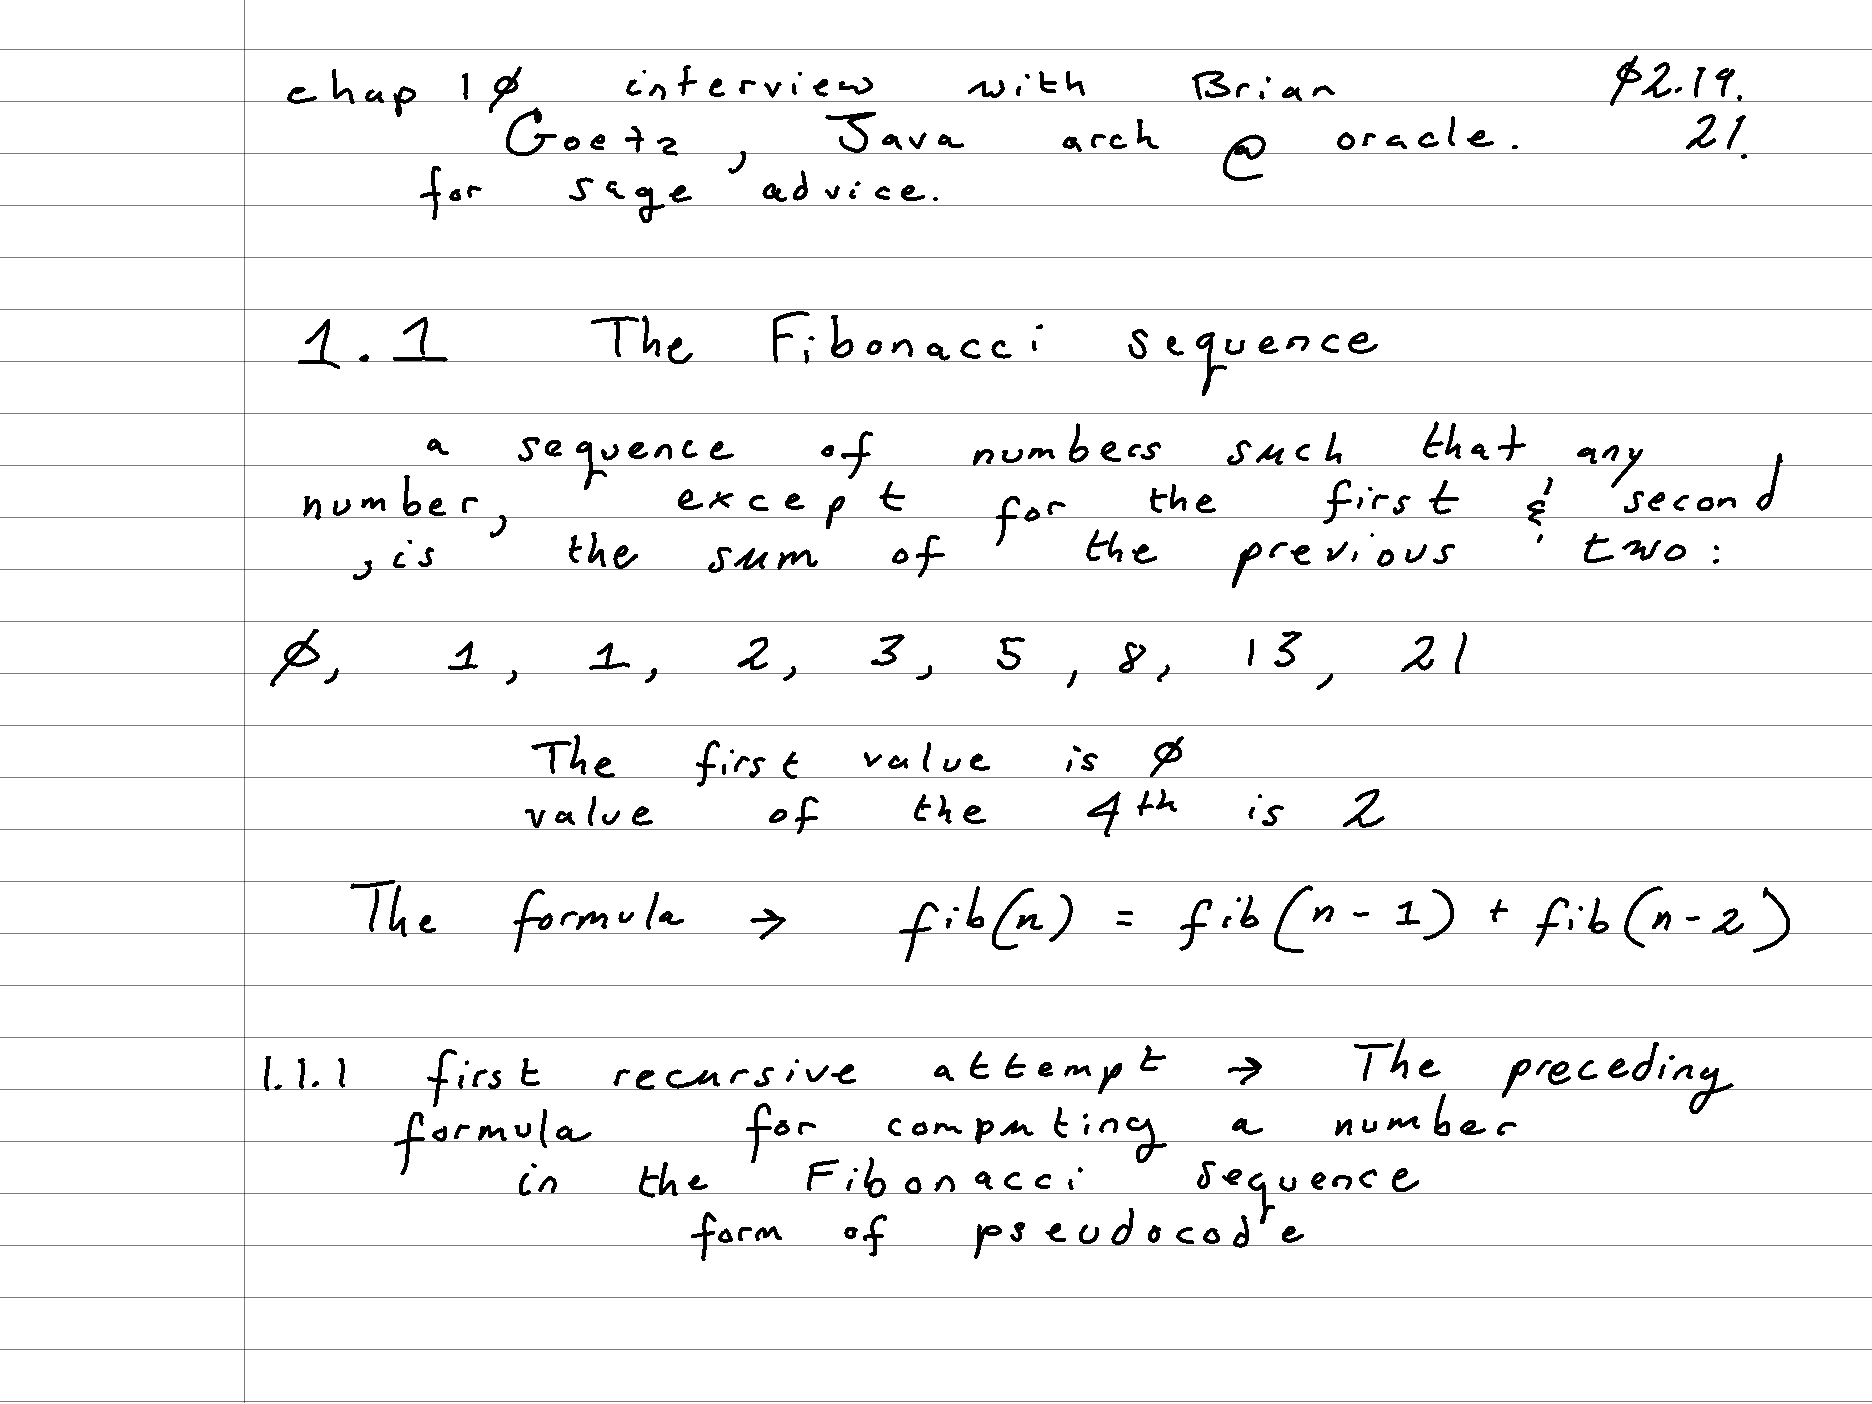 chap 1∅ interview with Brian ∅2.19.
Goetz, Java arch @ oracle. 21.
for sage advice.
1.1 The Fibonacci sequence
a sequence of numbers such that any
number, except for the first & second
, is the sum of the previous two:
∅, 1, 1, 2, 3, 5, 8, 13, 21
The first value is ∅
value of the 4th is 2
The formula → fib(n) = fib(n-1) + fib(n-2)
1.1.1 first recursive attempt → The preceding
formula for computing a number
in the Fibonacci sequence
form of pseudocode